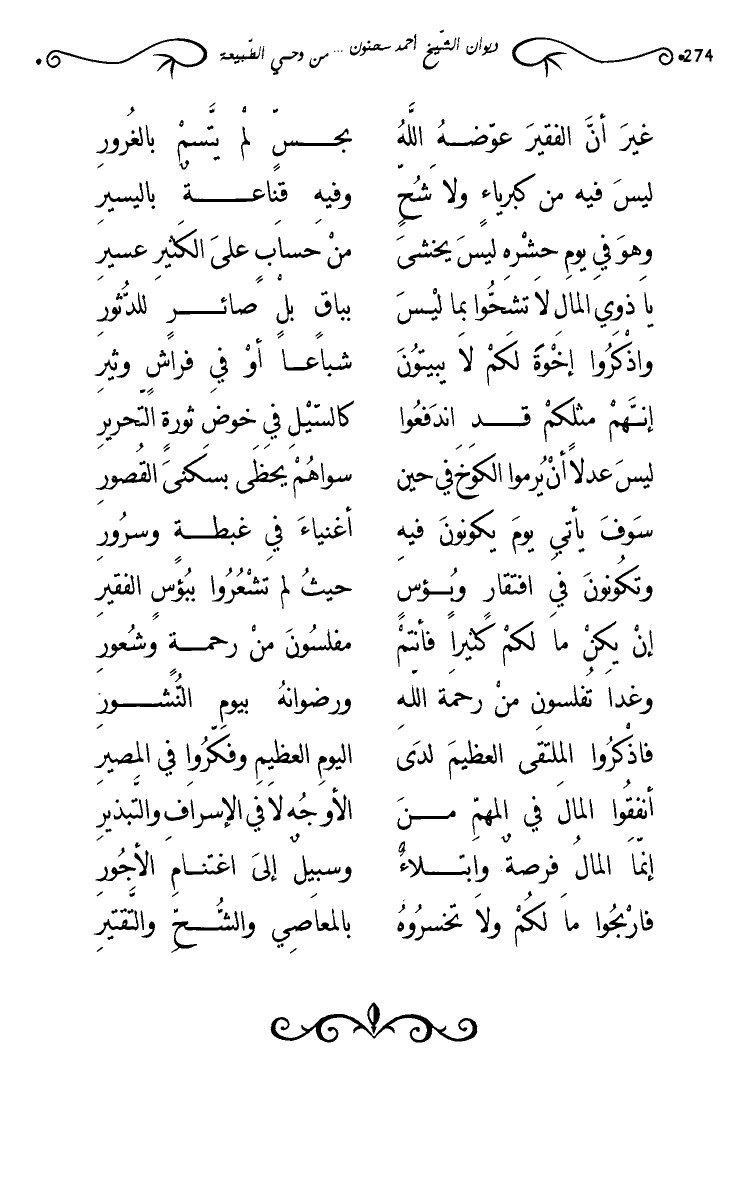 274 ديوان الشّيخ أحمد سحنون ... من وحي الطّبيعة
غيرَ أنَّ الفقيرَ عوّضهُ اللَّهُ بجسٍّ لمْ يتَّسمْ بالغُرورِ
ليسَ فيه من كبرياءٍ ولا شُحٍّ وفيهِ قناعةٌ باليسيرِ
وهوَ في يومِ حشْرهِ ليسَ يخشىَ منْ حسابٍ علىَ الكَثيرِ عسيرِ
يا ذوي المال لا تشحُّوا بما ليْسَ بباق بلْ صائرٍ للدُّثورِ
واذْكُرُوا إخْوةً لكمْ لا يبيتوُنَ شباعاً أوْ في فراشٍ وثيرِ
إنَّهمْ مثلكمْ قد اندَفعُوا كالسّيْلِ في خوضِ ثورةِ التّحريرِ
ليسَ عدلاً أنْ يُرموا الكوخَ في حينِ سواهُمْ يحظَى بسكنىَ القُصورِ
سَوفَ يأتيِ يومَ يكونونَ فيهِ أغنياءَ في غبطةٍ وسرُورِ
وتكُونونَ في افتقارٍ وبُؤسٍ حيثُ لم تشْعُرُوا ببُؤسِ الفقيرِ
إنْ يكنْ ما لكمْ كَثيراً فأنتمْ مفلسُونَ منْ رحمةٍ وشُعورِ
وغدا تُفلسون منْ رحمة اللهِ ورضوانهُ بيومِ النُّشورِ
فاذْكُرُوا الملتقى العظيمَ لدىَ اليومِ العظيمِ وفكّرُوا في المصيرِ
أنفقُوا المال في المهمِّ منَ الأوجُهِ لا في الإسرافِ والتَّبذيرِ
إنّما المالُ فرصةٌ وابتلاءٌ وسبيل إلىَ اغتنامِ الأجُورِ
فارْبحُوا ما لكُمْ ولا تخسرُوهُ بالمعاصِي والشُّحِّ والتَّقتيرِ